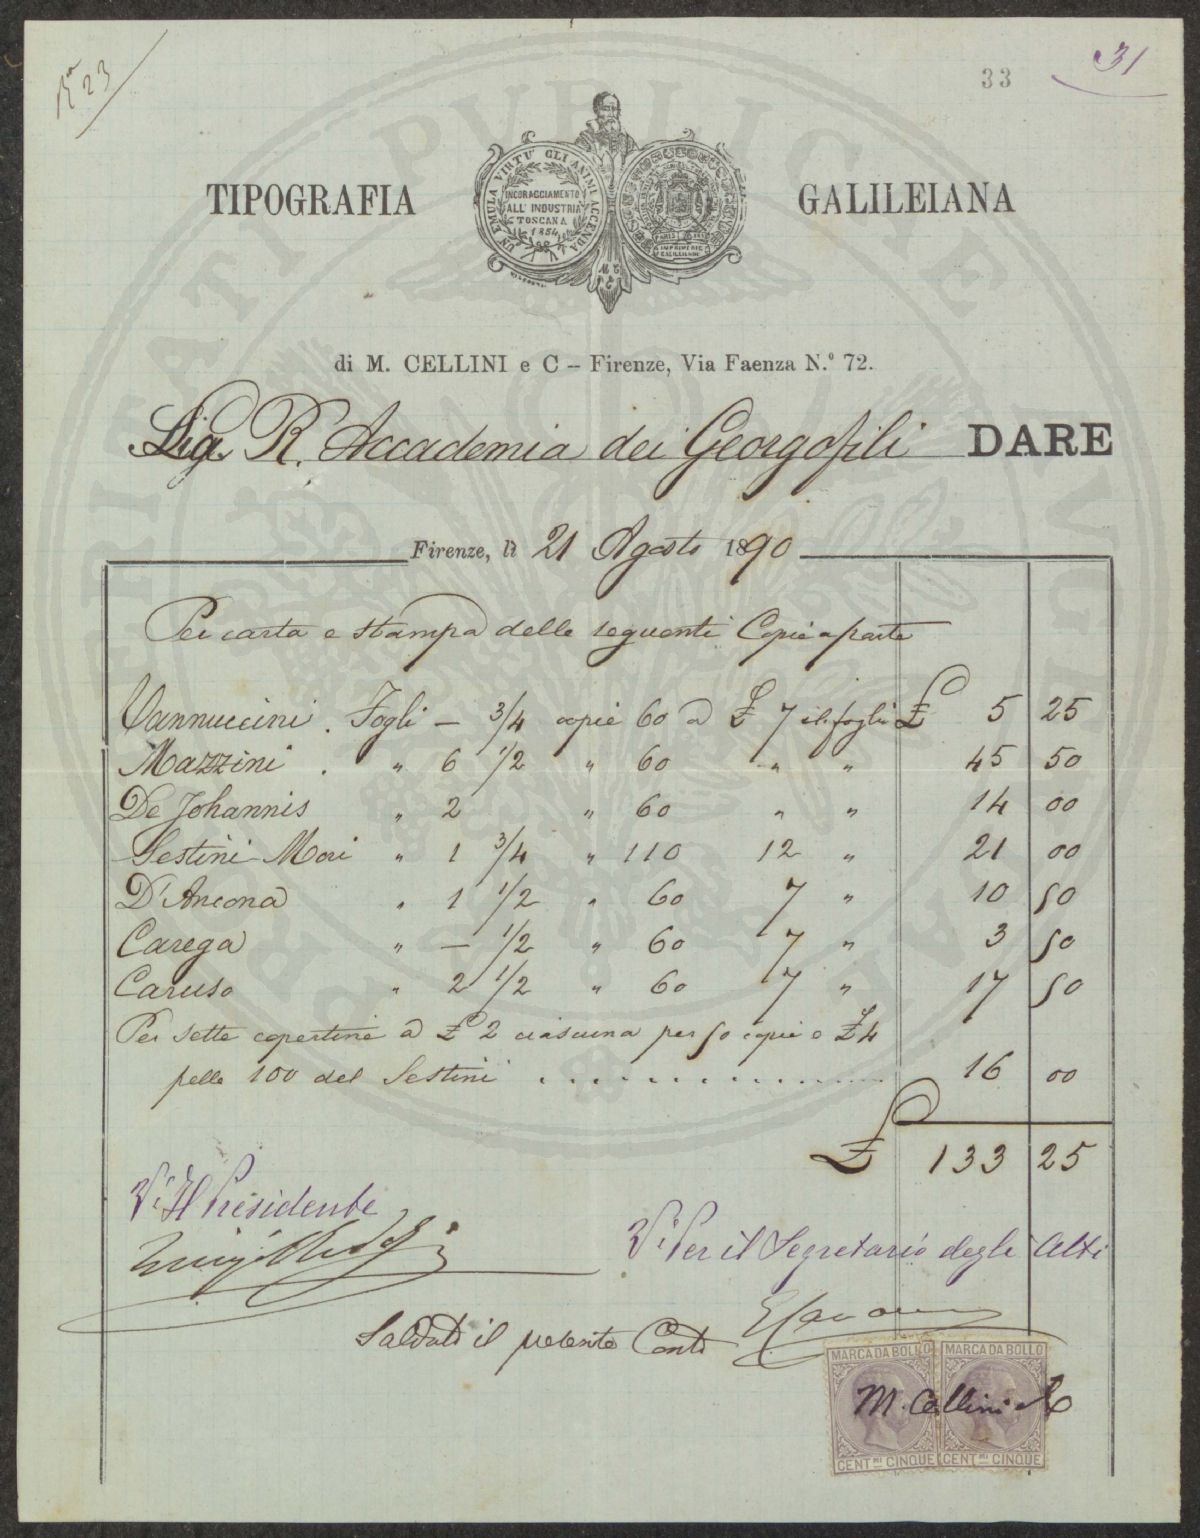 Rª 23
33
31
UN EMULA VIRTU' GLI ANIMI ACCENDA
INCORAGGIAMENTO
ALL' INDUSTRIA
TOSCANA
1854
TIPOGRAFIA GALILEIANA
di M. CELLINI e C – Firenze, Via Faenza N.º 72.
Sig. R. Accademia dei Georgofili DARE
Firenze, lì 21 Agosto 1890
Per carta e stampa delle seguenti Copie a parte
Vannuccini . Fogli — 3/4 copie 60 a £ 7 il foglio £ 5 25
Mazzini . " 6 1/2 " 60 " " 45 50
De Johannis " 2 " 60 " " 14 00
Sestini Mori " 1 3/4 " 110 12 " 21 00
D'Ancona " 1 1/2 " 60 7 " 10 50
Carega " — 1/2 " 60 7 " 3 50
Caruso " 2 1/2 " 60 7 " 17 50
Per sette copertine a £ 2 ciascuna per 50 copie e £ 4
pelle 100 del Sestini . . . . . . . . . . . . . . . . 16 00
£ 133 25
Vº Il Presidente
Luigi Ridolfi
Vº Per il Segretario degli Atti
Saldato il presente Conto
MARCA DA BOLLO MARCA DA BOLLO
M. Cellini e C
CENT.MI CINQUE CENT.MI CINQUE